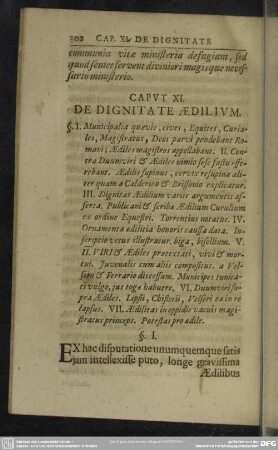 202 CAP. XI. DE DIGNITATE
communia vitæ ministeria defugiant, sed
quod sentet servent diviniori magisque neces-
sario ministerio.
CAPVT XI.
DE DIGNITATE ÆDILIVM.
§. I. Municipalia quævis, cives, Equites, Curia-
les, Magistratus, Deos parvi pendebant Ro-
mani; Ædiles magistros appellabant. II. Con-
tra Duumviri & Ædiles nimio sese fastu effe-
rebant. Ædilis supinus, cervix resupina ali-
ter quam a Calderino & Brissonio explicatur.
III. Dignitas Ædilium variis argumentis as-
serta. Publicani & scribæ Ædilium Curulium
ex ordine Equestri. Torrentius notatur. IV.
Ornamenta edilitia honoris caussa data. In-
scriptio vetus illustratur. biga, bisellium. V.
II. VIRI & Ædiles prætextati, vivi & mor-
tui. Juvenalis cum aliis compositus. a Vel-
sero & Ferrario discessum. Municipes tunica-
ti vulgo, jus togæ habuere. VI. Duumviri su-
pra Ædiles. Lipsii, Chifletii, Velseri ea in re
lapsus. VII. Ædilitas in oppidis vacuis magi-
stratus princeps. Potestas pro ædile.
§. I.
EX hac disputatione unumquemque satis
jam intellexisse puto, longe gravissima
Ædilibus